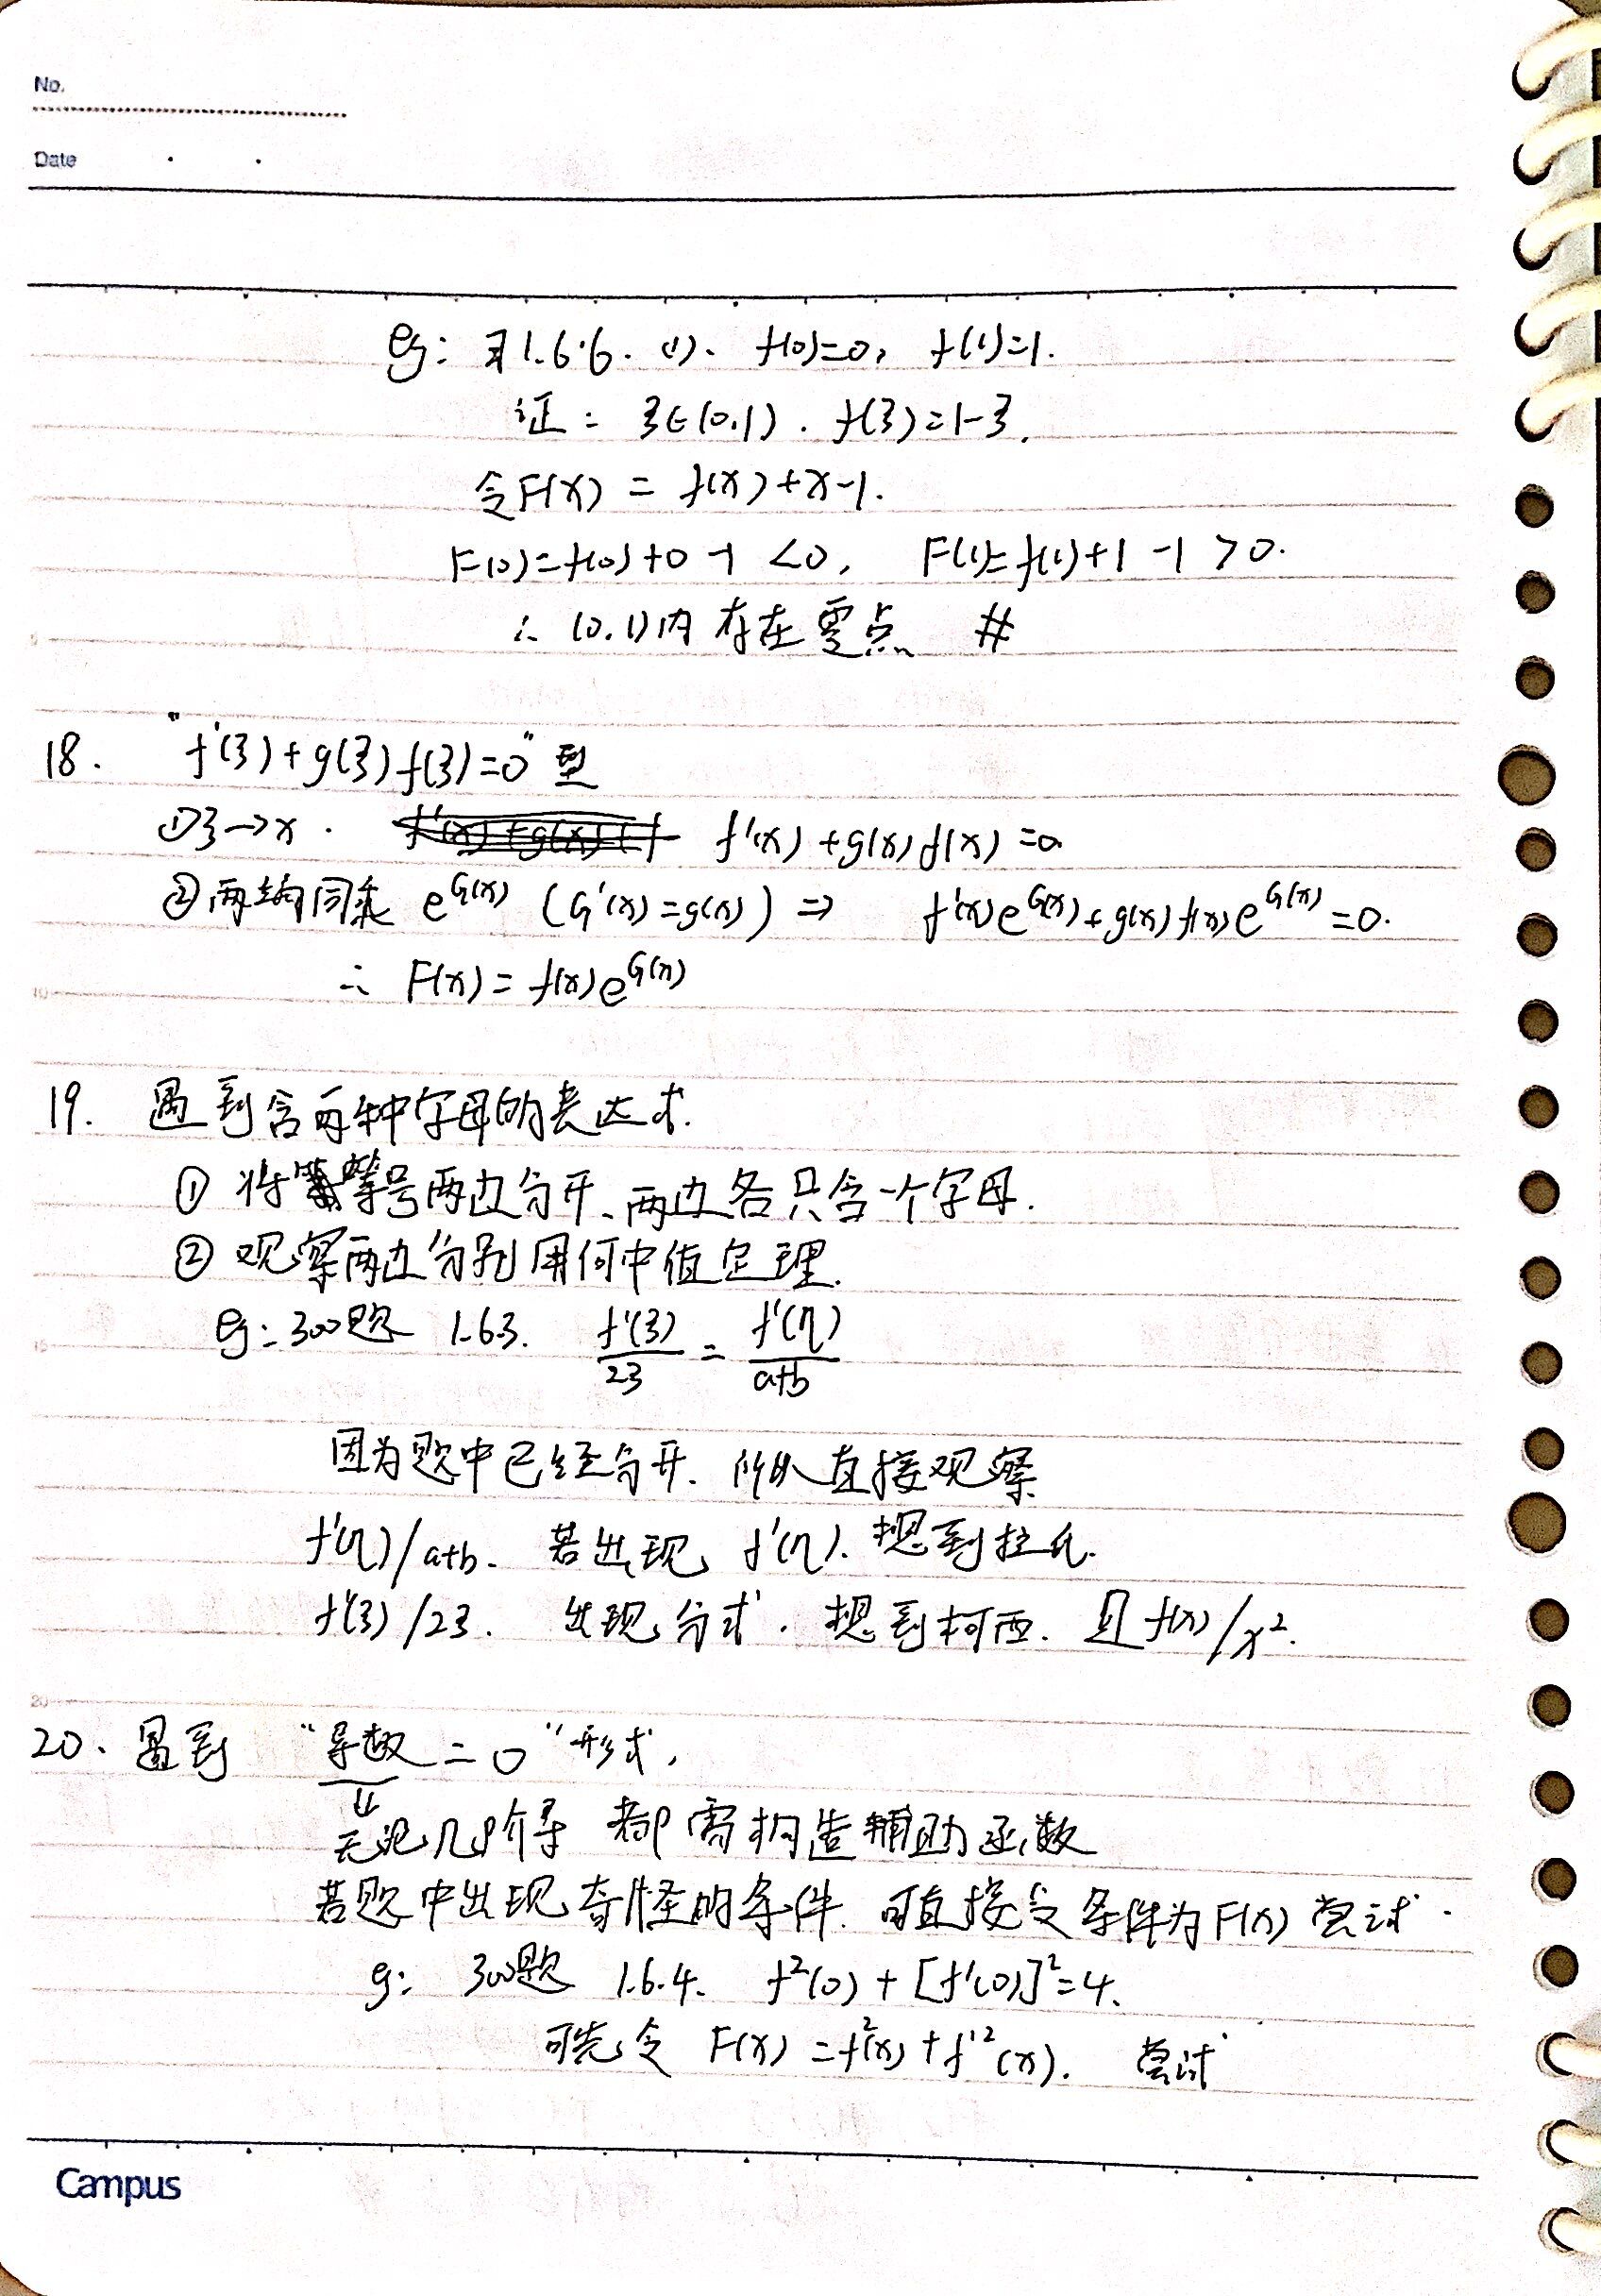 No.
Date
eg: 习1.6.6. (1). f(0)=0, f(1)=1.
证: ξ∈(0,1). f(ξ)=1-ξ.
令F(x) = f(x)+x-1.
F(0)=f(0)+0-1 <0, F(1)=f(1)+1-1 >0.
∴ (0,1)内存在零点 #
18. "f'(ξ)+g(ξ)f(ξ)=0"型
①ξ→x. f'(x)+g(x)f(x)=0
②两端同乘 e^G(x) (G'(x)=g(x)) ⇒ f'(x)e^G(x)+g(x)f(x)e^G(x)=0.
∴ F(x)=f(x)e^G(x)
19. 遇到含两种字母的表达式.
① 将等号两边分开、两边各只含一个字母.
② 观察两边分别用何中值定理.
eg: 300题 1.6.3. f'(ξ)/2ξ = f'(η)/a+b
因为题中已经分开. 所以直接观察
f'(η)/a+b. 若出现 f'(η). 想到拉氏.
f'(ξ)/2ξ. 出现分式. 想到柯西. 且f(x)/x².
20. 遇到 "导数=0"形式,
⇓
无论几阶导 都需构造辅助函数
若题中出现奇怪的条件. 可直接令条件为F(x)尝试.
eg: 300题 1.6.4. f²(0)+[f'(0)]²=4.
可先令 F(x)=f²(x)+f'²(x). 尝试
Campus